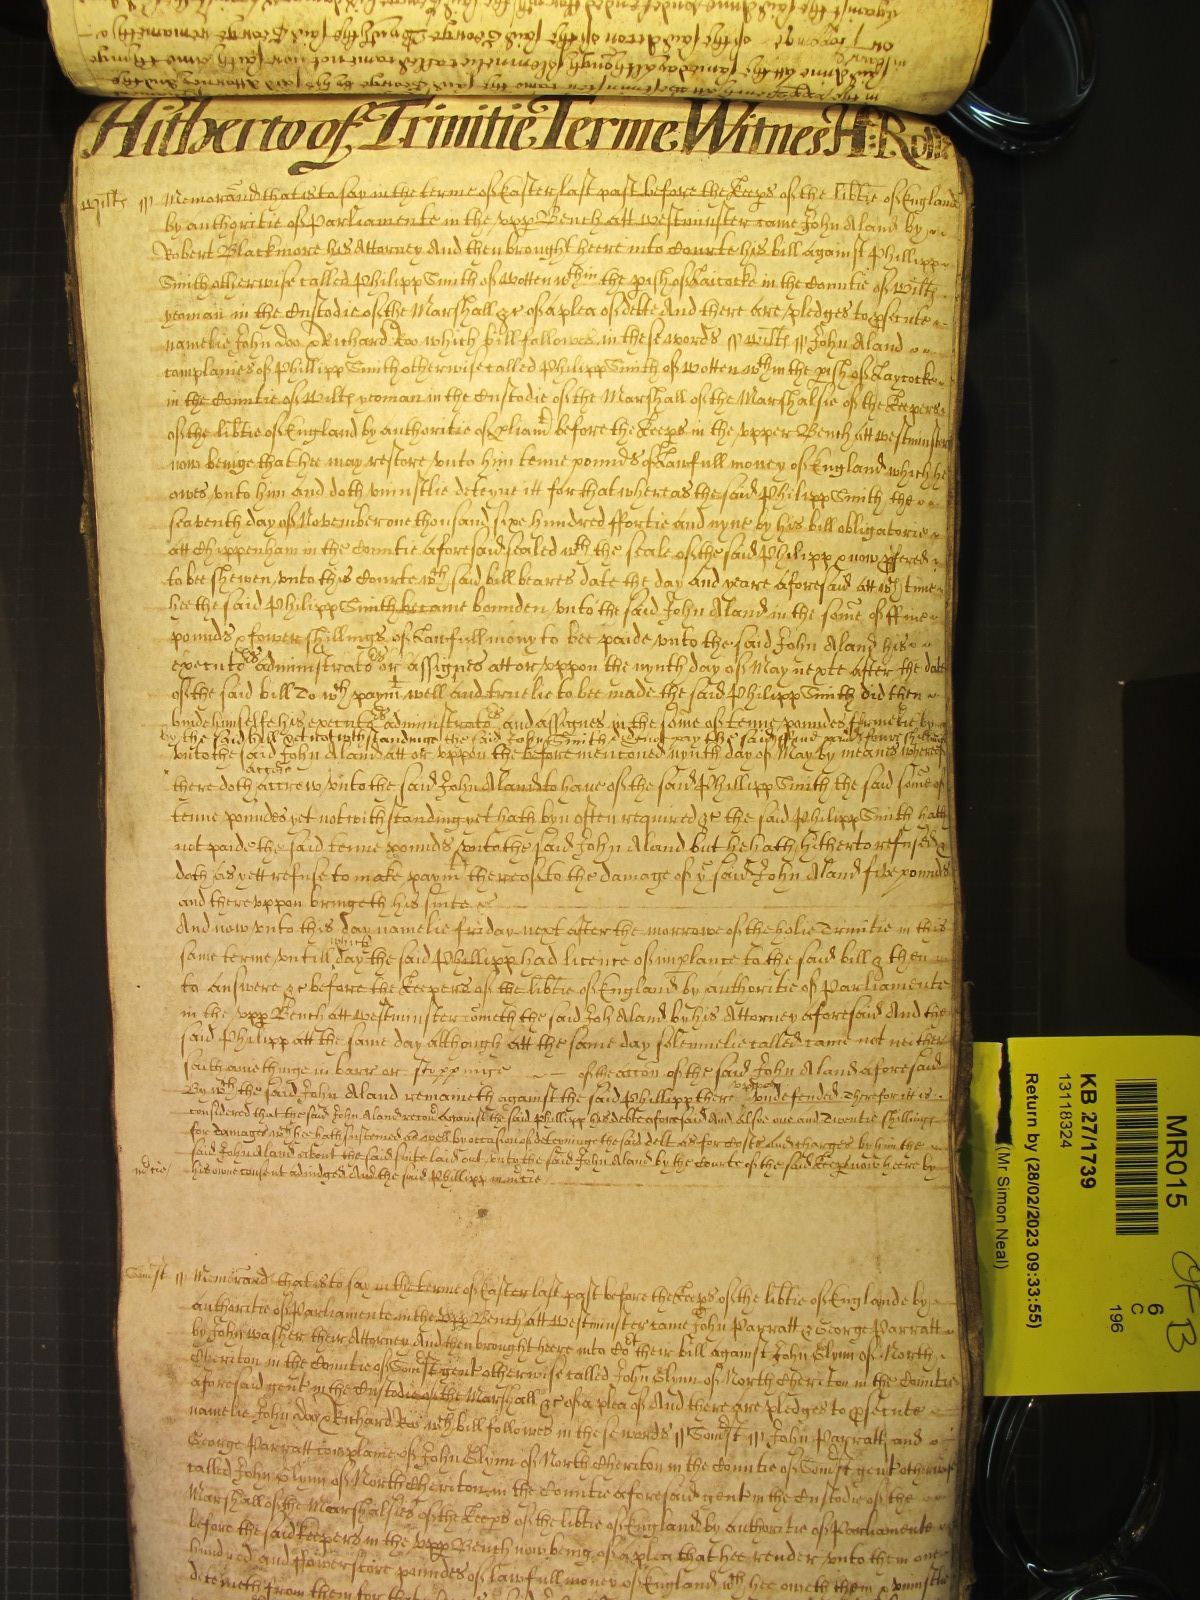 Hitherto of Trinitie Terme Witnes H: Rolle
Wiltes // Memorand that is to say in the terme of Easter last past before the Keeps of the libtie of England
by authoritie of Parliamente in the upp Bench att Westminster came John Aland by
Robert Blackmore his Attorney And then brought heere into Courte his bill against Phillipp
Smith otherwise called Philipp Smith of Wotten wthin the pish of Laicocke in the Countie of Wiltes
yeoman in the Custodie of the Marshall &c of a plea of debte And there are pledges to psecute
namelie John Doo & Richard Roo which bill followes in these words // Wiltes // John Aland
complaines of Phillipp Smith otherwise called Philipp Smith of Wotten wthin the pish of Laycocke
in the Countie of Wiltes yeoman in the Custodie of the Marshall of the Marshalsie of the Keepers
of the libtie of England by authoritie of pliamt before the Keeps in the upper Bench att Westminster
now beinge that hee may restore unto him tenne pounds of Lawfull money of England which he
owes unto him and doth uniustlie deteyne itt for that whereas the said Philipp Smith the
seaventh day of November one thousand sixe hundred ffortie and nyne by his bill obligatorie
att Chippenham in the Countie aforesaid sealed wth the seale of the said Philipp & now pfered
to bee shewen unto this Courte wch said bill beares date the day and yeare aforesaid att wch time
hee the said Philipp Smith became bounden unto the said John Aland in the some of ffive
pounds & fower shillings of Lawfull mony to bee paide unto the said John Aland his
executors administrators or assignes att or uppon the nynth day of May nexte after the date
of the said bill To wch paymt well and truelie to bee made the said Philipp Smith did then
binde himselfe his executors administrators and assignes in the some of tenne pounds firmelie by
by the said bill yet notwithstandinge the said John Smith did not pay the said five pounds fower shillings
unto the said John Aland att or uppon the before mencioned nynth day of May by means whereof
accon
there doth accrew unto the said John Aland to have of the said Phillipp Smith the said some of
tenne pounds yet notwithstanding yet hath byn often required &c the said Philipp Smith hath
not paide the said tenne pounds unto the said John Aland but he hath hitherto refused &
doth as yett refuse to make paymt thereof to the damage of ye said John Aland five pounds
and there uppon bringeth his suite &c
And now unto this day namelie friday next after the morrowe of the holie Trinitie in this
which
same terme untill day the said Phillipp had licence of implance to the said bill & then
to answere &c before the Keepers of the libtie of England by authoritie of Parliamente
in the upp Bench att Westminster cometh the said Joh Aland by his Attorney aforesaid And the
said Philipp att the same day although att the same day solemnelie called came not neither
saith anethinge in barr or stoppinge of the accon of the said John Aland aforesaid
uppon
By wch the said John Aland remaneth against the said Philipp there undefended Therefore itt is
considered that the said John Aland recov Against the said Phillipp his debte aforesaid And Alsoe one and Twentie shillings
for damages wch hee hath susteined as well by occasion of deteyninge the said debt as for Costes and charges by him the
said John Aland about the said suite laid out unto the said John Aland by the Courte of the said Keeps now heere by
mercie/ his owne consent adiudged And the said Phillipp in mercie
Somst // Memorand that is to say in the terme of Easter last past before the Keeps of the libtie of Englande by
authoritie of Parliamente in the upp Bench att Westminster came John Parratt & George Parratt
by John Washer their Attorney And then brought heere into Cort their bill against John Glynn of North
Cheriton in the Countie of Somst gent otherwise called John Glynn of North Cheriton in the Countie
aforesaid gent in the Custodie of the Marshall &c of a plea of And there are pledges to psecute
namelie John Doo & Richard Roo wch bill followes in these words // Somst // John Parratt and
George Parratt complaine of John Glynn of North Cheriton in the Countie of Somst gent otherwise
called John Glynn of North Cheriton in the Countie aforesaid gent in the Custodie of the
Marshall of the Marshalsies of the Keeps of the libtie of England by authoritie of Parliamente
before the said Keepers in the upp Bench now being of a plea that hee render unto them one
hundred and ffowerscore poundes of lawfull money of England wch hee oweth them & uniustlie
deteineth from them for that
MR015
KB 27/1739
13118324
Return by (28/02/2023 09:33:55)
(Mr Simon Neal)
6
C
196